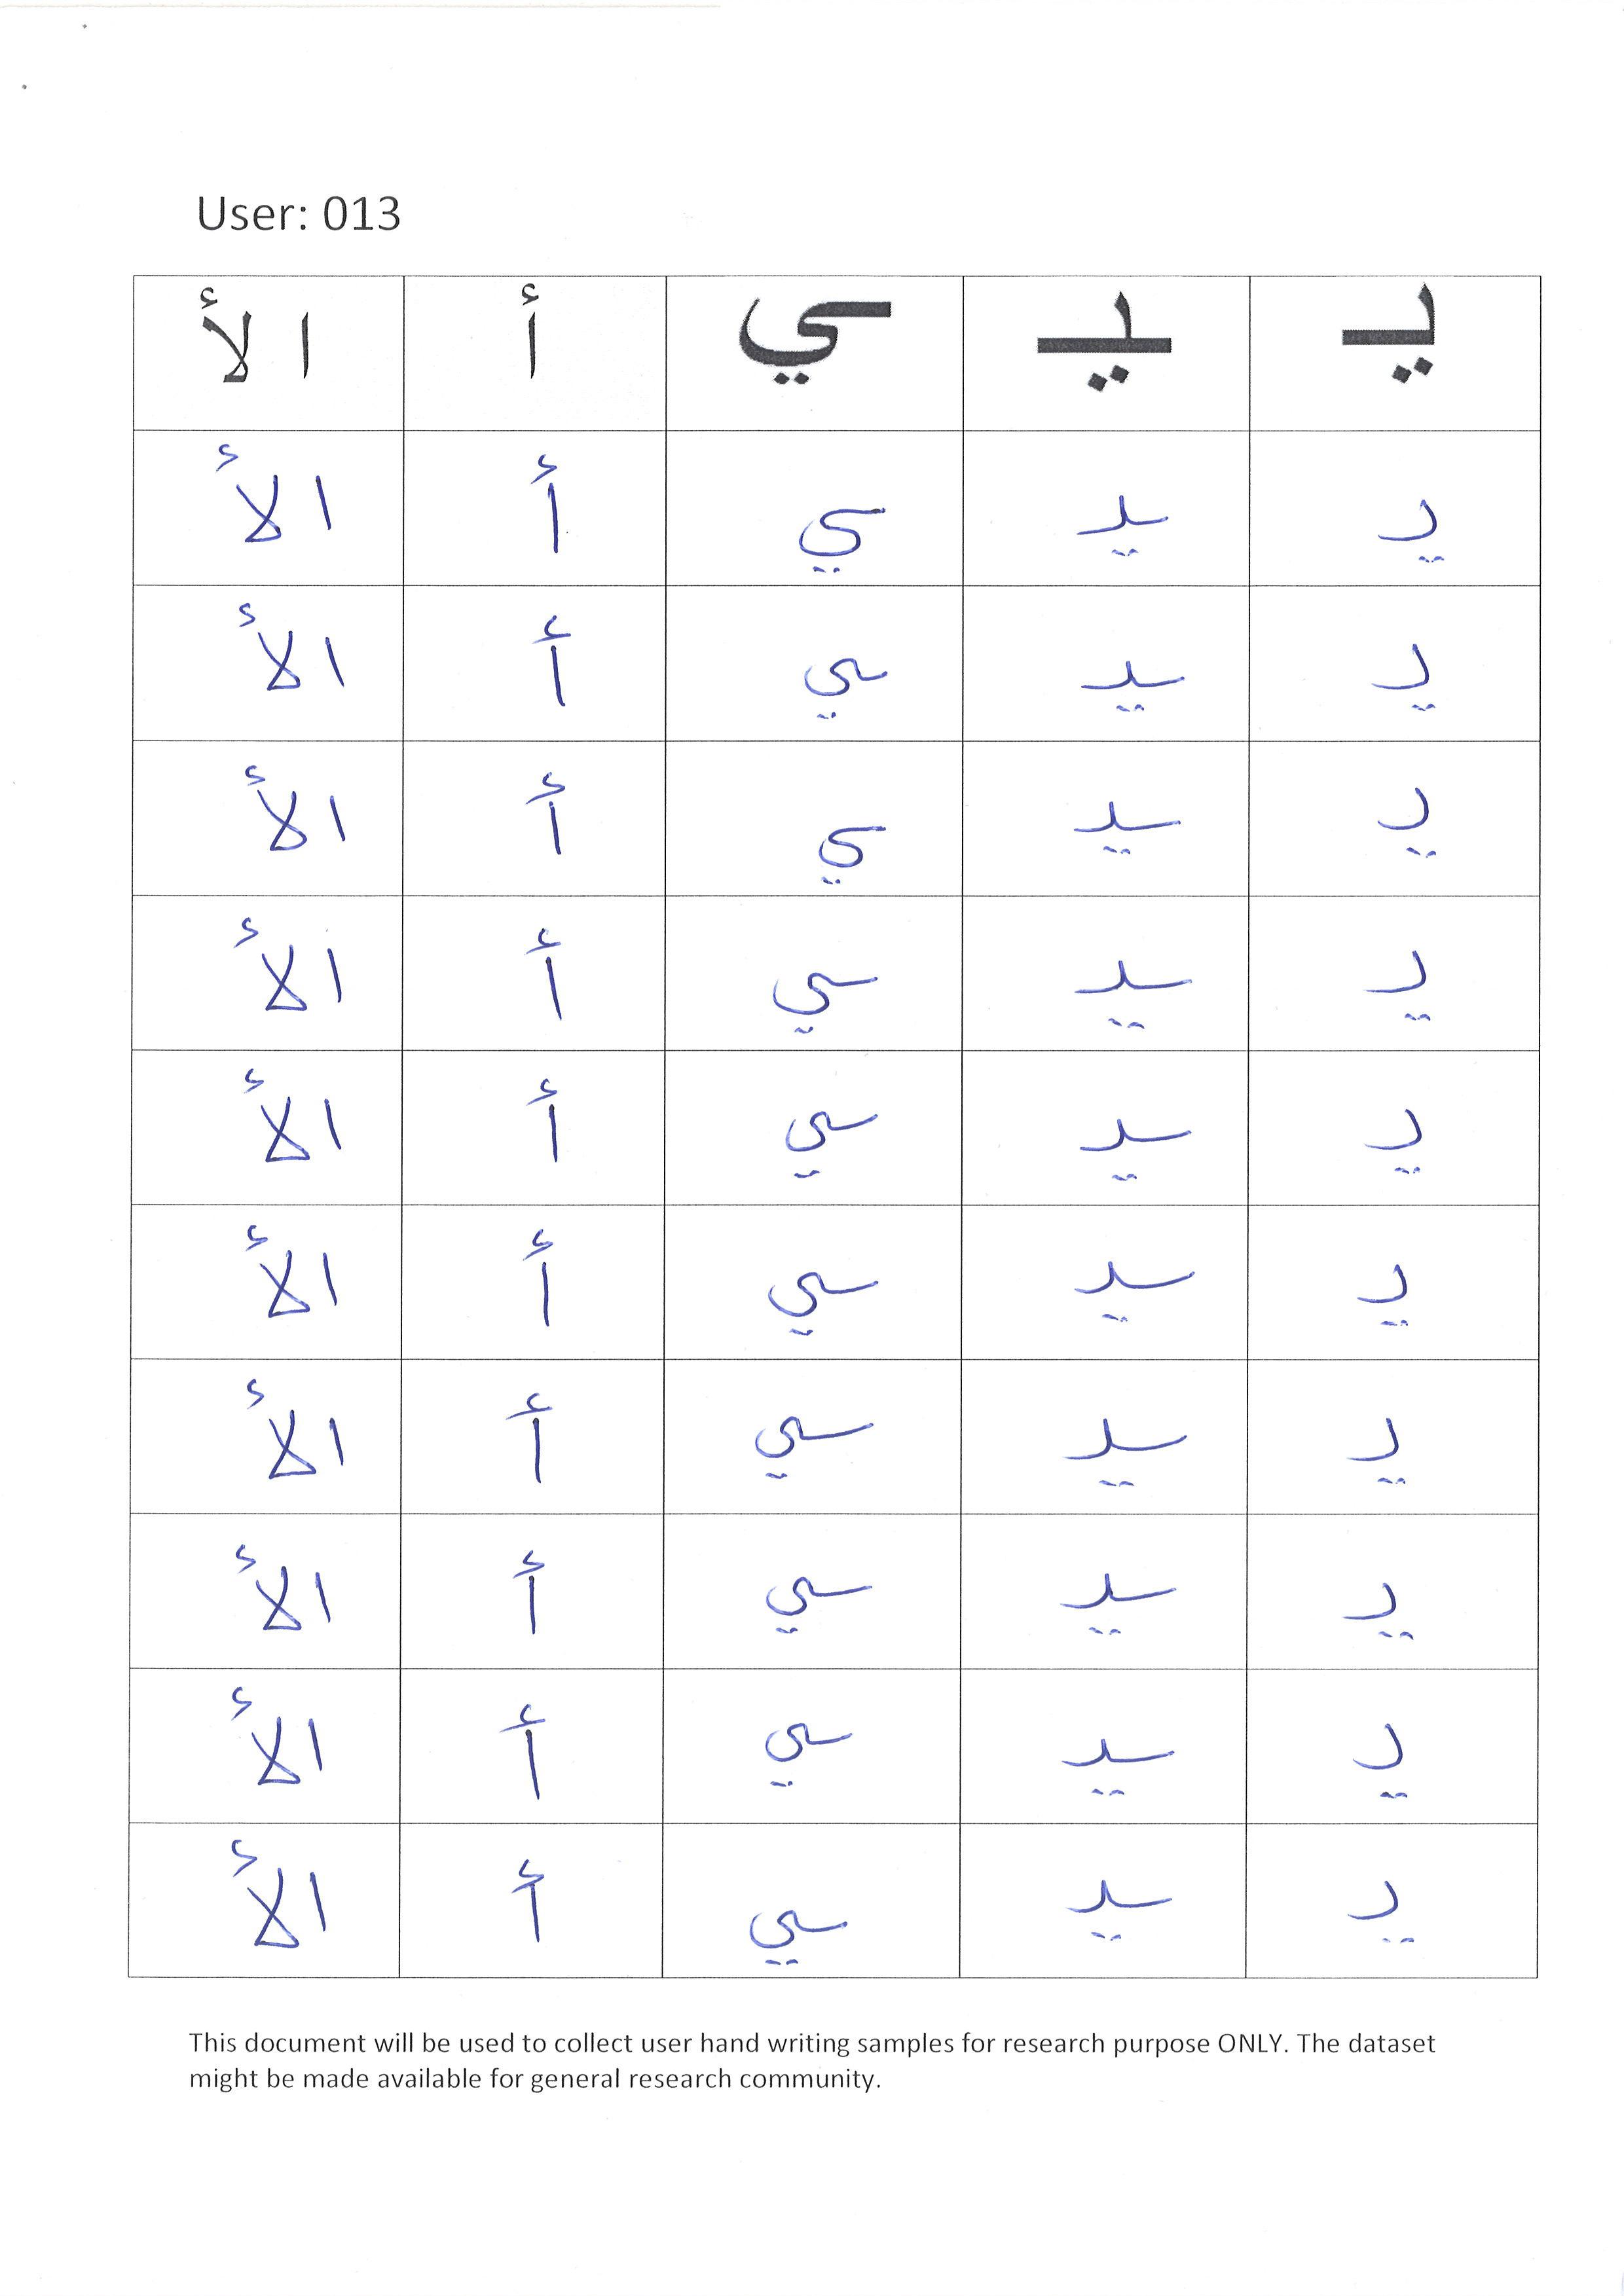 User: 013
يـ ـيـ ـي أ الأ
يـ ـيـ ـي أ الأ
يـ ـيـ ـي أ الأ
يـ ـيـ ـي أ الأ
يـ ـيـ ـي أ الأ
يـ ـيـ ـي أ الأ
يـ ـيـ ـي أ الأ
يـ ـيـ ـي أ الأ
يـ ـيـ ـي أ الأ
يـ ـيـ ـي أ الأ
يـ ـيـ ـي أ الأ
This document will be used to collect user hand writing samples for research purpose ONLY. The dataset
might be made available for general research community.